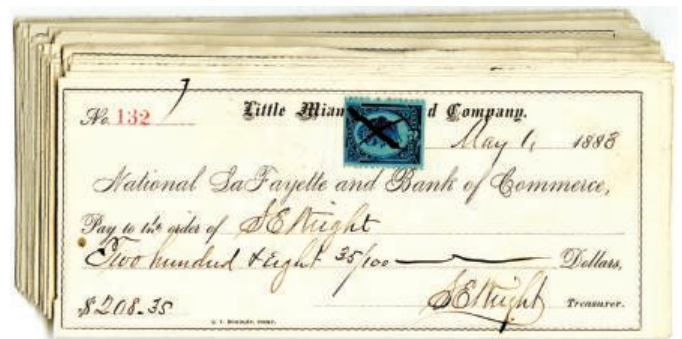 No. 132 Little Mian d Company.
May 1, 1883
National LaFayette and Bank of Commerce,
Pay to the order of S E Wright
Two hundred & Eight 35/100 Dollars,
$208.35 S E Wright Treasurer.